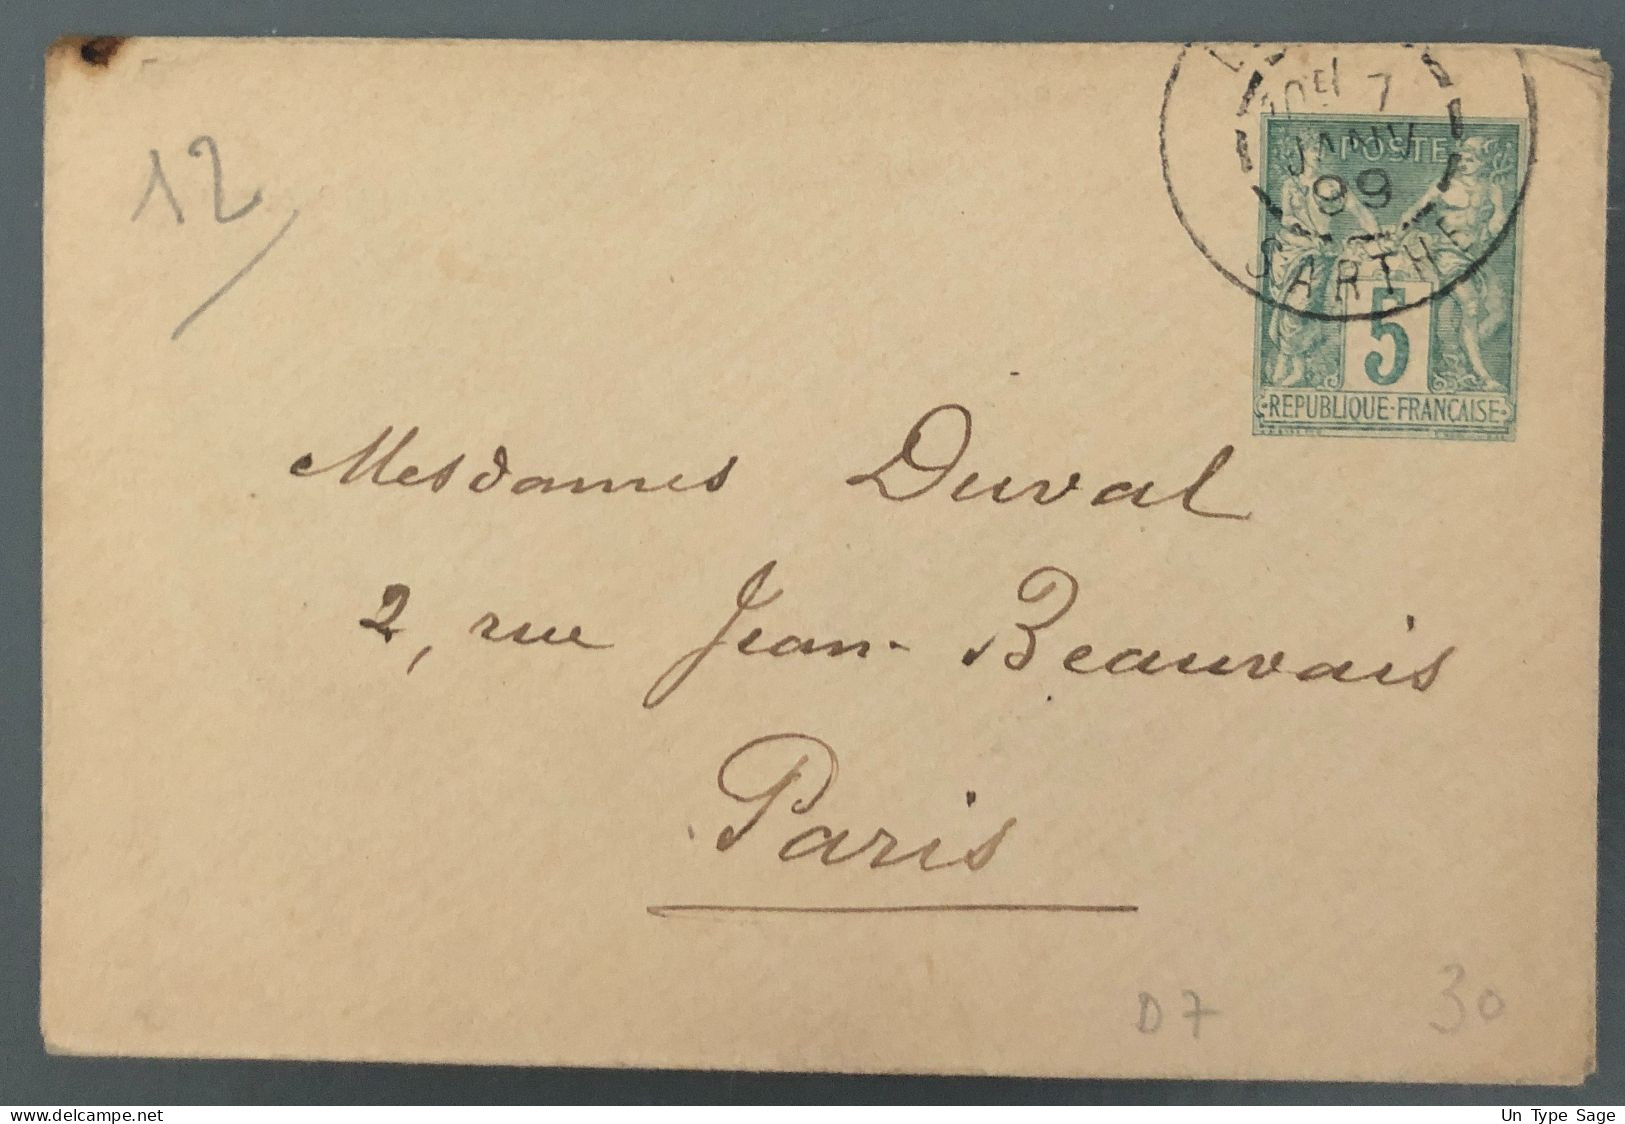 12
10E 7
JANV
99
SARTHE
POSTE
5
REPUBLIQUE-FRANÇAISE
Mesdames Duval
2, rue Jean-Beauvais
Paris
D7 30
www.delcampe.net
Un Type Sage